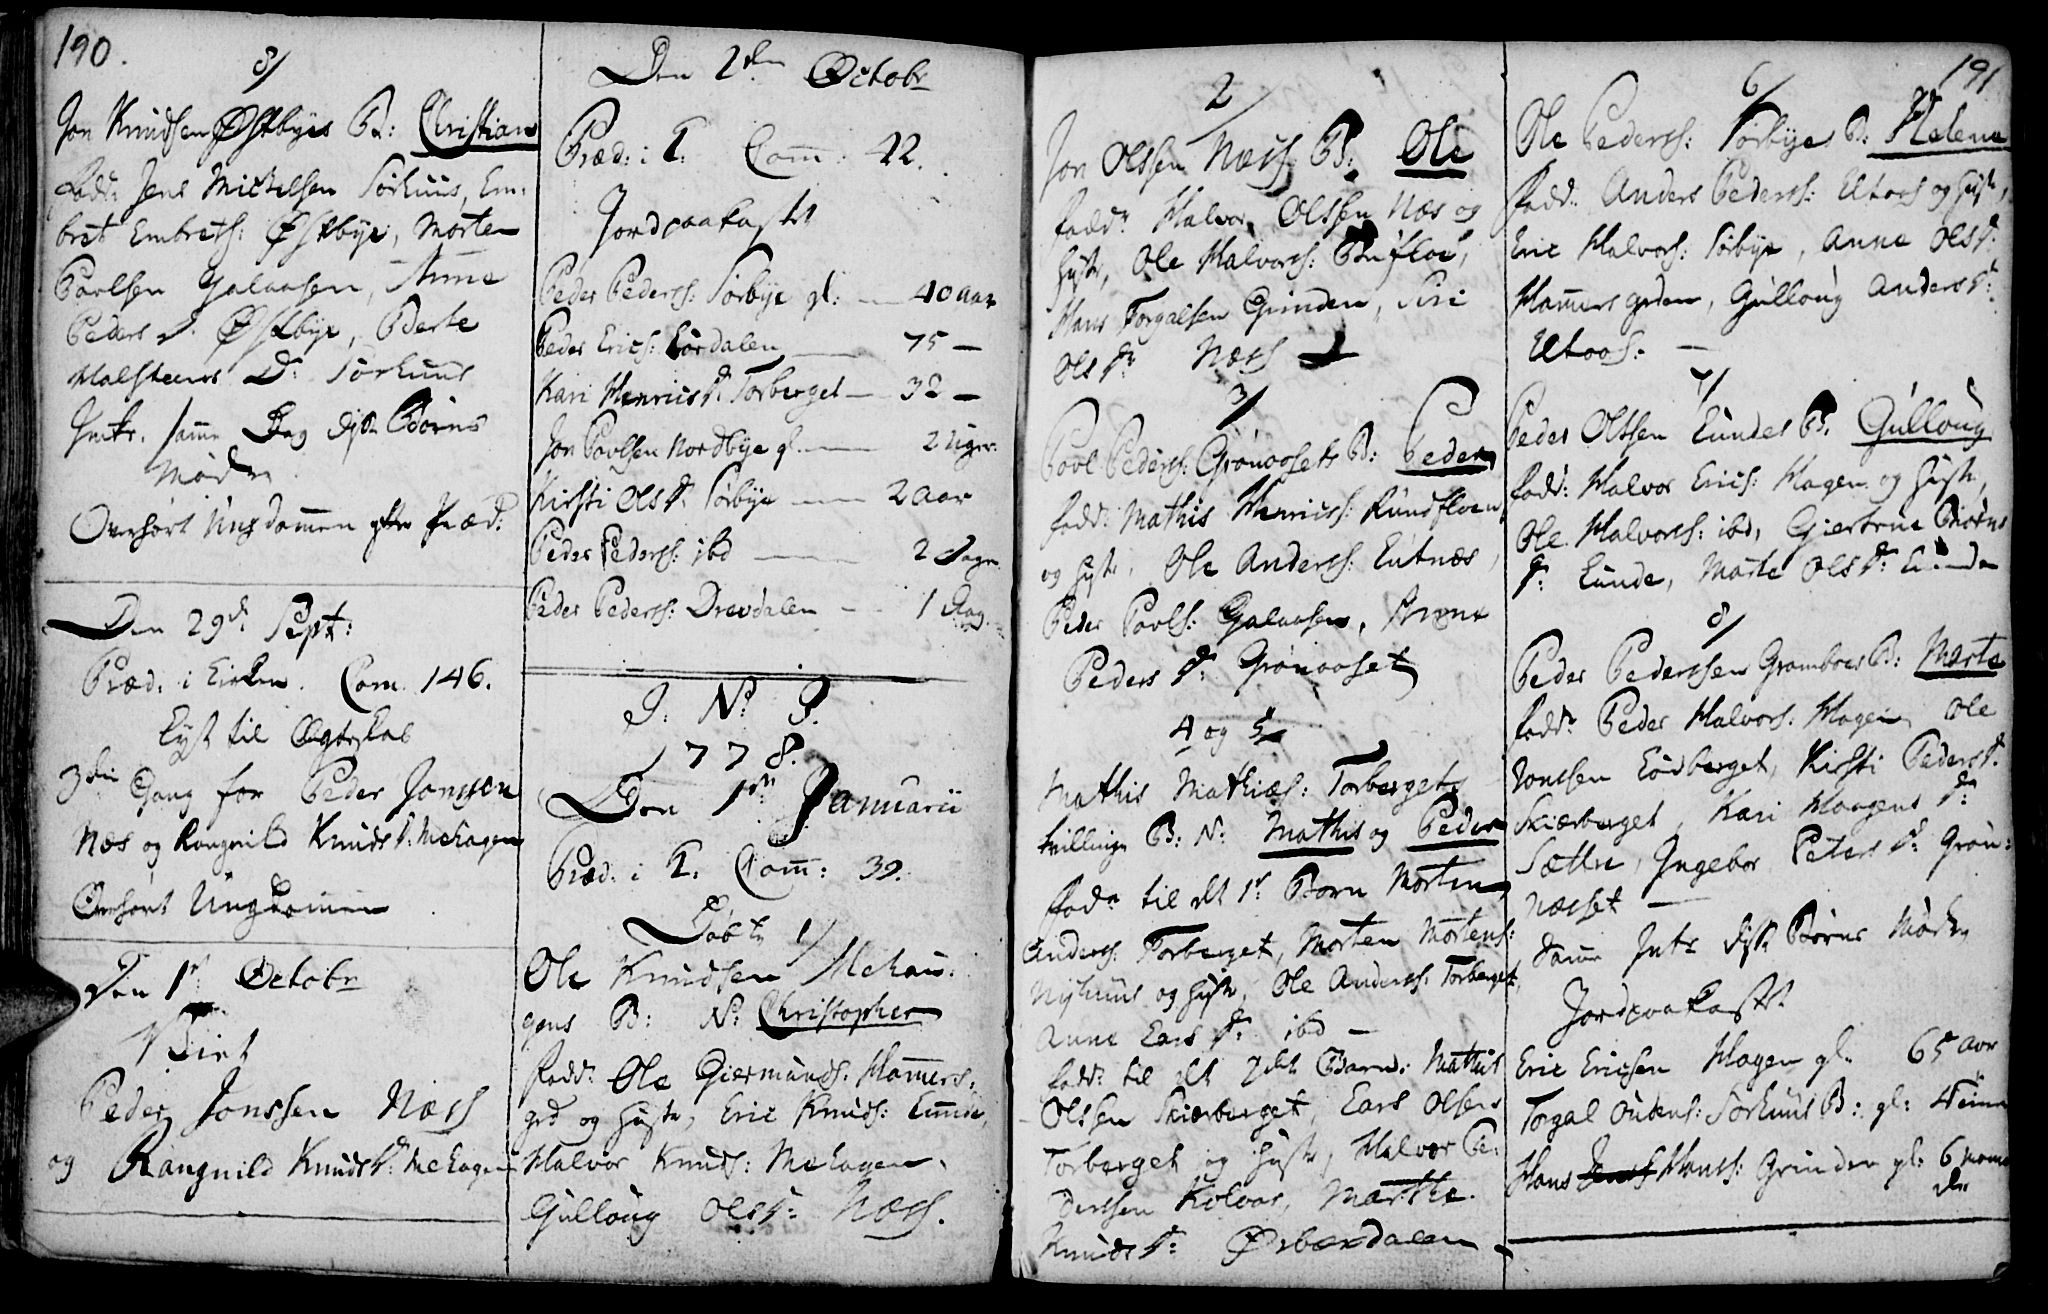 190.
8/
Jon Knudsen Østbyes B: Christian
Fadd: Jens Michelsen Sørhuus, Em-
bret Embrets: Østbye, Morten
Povlsen Galaasen, Anne
Peders D. Østbye, Berte
Halsteens D: Sørhuus
Intr. samme Dag diste Børns
Mødre
Overhørt Ungdommen efter Præd:
Den 29de Sept:
Præd: i Kirken. Com. 146.
Lyst til Ægteskab
3die Gang for Peder Jonssen
Næs og Rangnild Knuds D: Mehagen
Overhørt Ungdommen
Den 1ste Octobr
Viet
Peder Jonssen Næss
og Rangnild Knuds D: Mehagen
Den 2den Octobr
Præd: i T: Com: 42.
Jordpaakastet
Peder Peders: Sørbye gl: — 40 aar
Peder Erics: Lørdalen — 75 —
Kari Henrics D. Torberget — 32 —
Jon Povlsen Nordbye gl. — 2 Uger
Kirsti Ols D. Sørbye — 2 aar
Peder Peders: ibd — 2 Dage
Peder Peders: Drevdalen — 1 Dag.
J: N: J.
1778.
Den 1ste Januarii
Præd: i T. Com: 39.
Døbte
1/
Ole Knudsen Mehau-
gens B: N: Christopher
Fadd: Ole Giermunds: Hammers-
grd og Hustr, Eric Knuds: Lunde,
Halvor Knuds: Mehagen,
Gulloug Ols D: Næss.
2/
Jon Olssen Næss B: Ole
Fadd: Halvor Olssen Næs og
Hustr, Ole Halvors: Bufloe,
Hans Torgalsen Grinden, Siri
Ols D: Næss
3/
Povl Peders: Grønoosets B: Peder
Fadd: Mathis Henrics: Rundfloen
og Hustr, Ole Anders: Lutnæs,
Peder Povls: Galaasen, Anne
Peders D: Grønooset
4 og 5/
Mathis Mathias: Torbergets
tvillinge B: N: Mathis og Peder
Fadd: til det 1ste Barn Morten
Anders: Torberget, Morten Mortens:
Nyhuus og Hustr, Ole Anders: Torberget,
Anne Lars D: ibd —
Fadd: til det 2det Barn: Mathis
Olssen Skiærberget, Lars Olsen
Torberget og Hustr, Halvor Pe-
derssen Kolvos, Marthe
Knuds D: Ørbærdalen
191
6/
Ole Peders: Sørbyes B: Helene
Fadd: Anders Peders: Utoos og Hustr,
Eric Halvors: Sørbye, Anne Ols D:
Hammersgrden, Gulloug Anders D:
Utoos. —
7/
Peder Olssen Lundes B. Gulloug
Fadd: Halvor Erics: Hagen og Hustr,
Ole Halvors: ibd, Giertrue Biørns
D: Lunde, Marte Ols D: Lunde
8/
Peder Pederssen Gramboes B: Marte
Fadd: Peder Halvors: Hagen, Ole
Jonssen Lørberget, Kirsti Peders D.
Skiærberget, Kari Haagens D:
Sættre, Ingebor Peders D: Grøn-
næsset —
Samme Intr diste Børns Mødre
Jordpaakastet
Eric Ericsen Hagen gl: 65 aar
Torgal Oudens: Sørhuus B: gl: 4 Timer
Hans Hanss: Grinden gl: 6 Maane
der